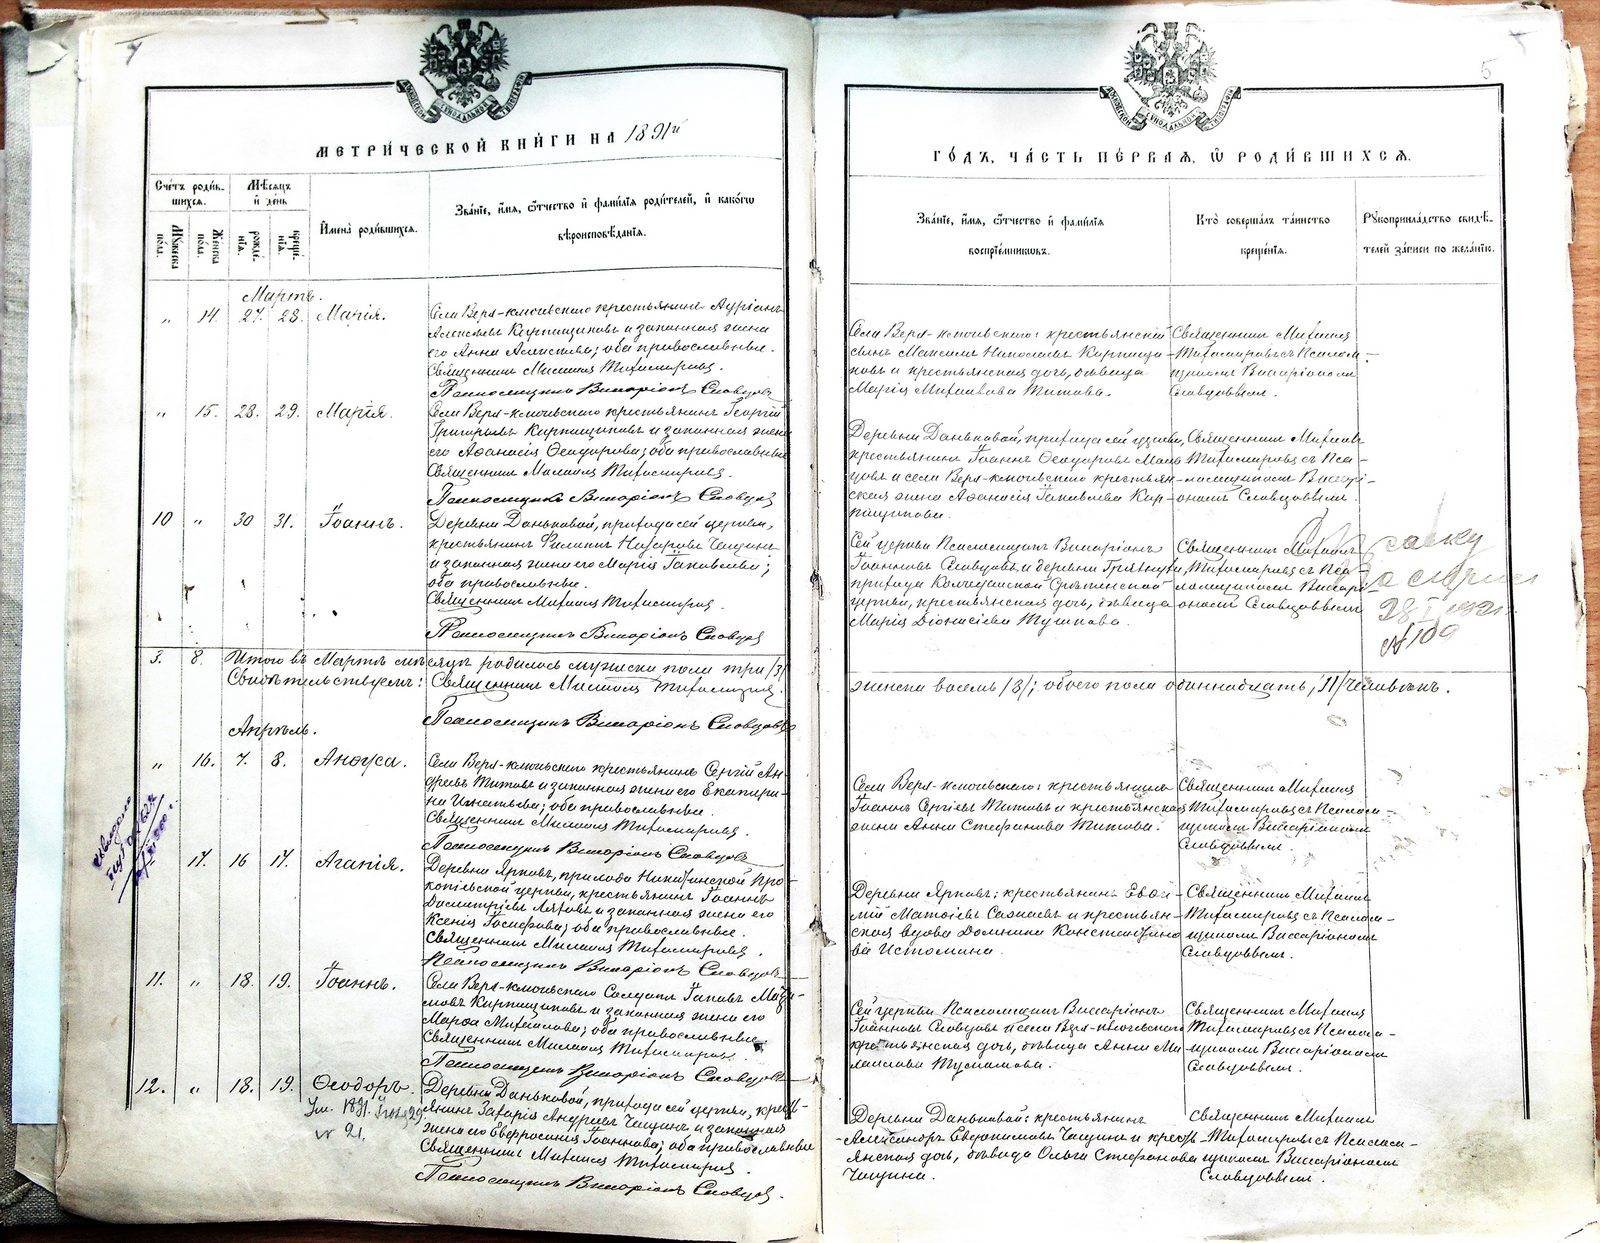 МЕТРИ́ЧЕСКОЙ КНИ́ГИ НА 1891й
Сче́тъ роди́вшихся.
Му́жеска по́ла.
Же́нска по́ла.
Мѣ́сяцъ и҆ де́нь
рожде́нїя.
креще́нїя.
И҆мена̀ роди́вшихся.
Зва́нїе, и҆́мя, ѻ҆́тчество и҆ фами́лїя роди́телей, и҆ како́гѡ
вѣроисповѣ́данїя.
Мартъ.
„ 14. 27. 28. Марія.
Села Верх-ключевскаго крестьянинъ
Карпищиковъ и законная жена
его Анна Алексѣева; оба православные.
Священникъ Михаилъ Тихомировъ.
Псаломщикъ Виссаріонъ Словцовъ
„ 15. 28. 29. Марія.
Села Верх-ключевскаго крестьянинъ Георгій
Григорьевъ Карпищиковъ и законная жена
его Афанасія Ѳеодорова; оба православные
Священникъ Михаилъ Тихомировъ.
Псаломщикъ Виссаріонъ Словцовъ
10 „ 30 31. Іоаннъ.
Деревни Даньковой, прихода сей церкви,
крестьянинъ Филиппъ Назаровъ Чащинъ
и законная жена его Марія Іаковлева;
оба православные.
Священникъ Михаилъ Тихомировъ.
Псаломщикъ Виссаріонъ Словцовъ
3. 8. Итого въ Мартѣ мѣсяцѣ родилось мужеска пола три /3/
Свидѣтельствуемъ: Священникъ Михаилъ Тихомировъ.
Псаломщикъ Виссаріонъ Словцовъ
Апрѣль.
„ 16. 7. 8. Анфуса.
Села Верх-ключевскаго крестьянинъ Сергій Ан-
дреевъ Титовъ и законная жена его Екатери-
на Игнатьева; оба православные.
Священникъ Михаилъ Тихомировъ.
Псаломщикъ Виссаріонъ Словцовъ
„ 17. 16 17. Агапія.
Деревни Ярковъ, прихода Никитинской Про-
копіевской церкви, крестьянинъ Іоаннъ
Димитріевъ и законная жена его
Ксенія Іосифова; оба православные.
Священникъ Михаилъ Тихомировъ.
Псаломщикъ Виссаріонъ Словцовъ
11. „ 18. 19. Іоаннъ.
Села Верх-ключевскаго Солдатъ Іаковъ Макси-
мовъ Карпищиковъ и законная жена его
Марфа Михаилова; оба православные.
Священникъ Михаилъ Тихомировъ.
Псаломщикъ Виссаріонъ Словцовъ
12. „ 18. 19. Ѳеодоръ.
Ум. 1891
№ 21.
Деревни Даньковой, прихода сей церкви, кресть-
янинъ Захарія Андреевъ Чащинъ и законная
жена его Евфросинія Іоаннова; оба православные
Священникъ Михаилъ Тихомировъ.
Псаломщикъ Виссаріонъ Словцовъ.
5
ГО́ДЪ, ЧА́СТЬ ПЕ́РВАЯ, Ѡ҆ РОДИ́ВШИХСЯ.
Зва́нїе, и҆́мя, ѻ҆́тчество и҆ фами́лїя
воспрїе́мниковъ.
Кто̀ соверша́лъ та́инство
креще́нїя.
Рꙋкоприкла́дство свидѣ́-
телей за́писи по жела́нїю.
Села Верх-ключевскаго: крестьянскій
сынъ Максимъ Николаевъ Карпищи-
ковъ и крестьянская дочь, дѣвица
Марія Михаилова Титова.
Священникъ Михаилъ
Тихомировъ съ Псалом-
щикомъ Виссаріономъ
Словцовымъ.
Деревни Даньковой, прихода сей церкви,
крестьянинъ Іоаннъ Ѳеодоровъ
и села Верх-ключевскаго крестьян-
ская жена Афанасія Іаковлева Кар-
пищикова.
Священникъ Михаилъ
Тихомировъ съ Пса-
ломщикомъ Виссарі-
ономъ Словцовымъ.
Сей церкви Псаломщикъ Виссаріонъ
Іоанновъ Словцовъ и деревни
прихода Срѣтенской
церкви, крестьянская дочь, дѣвица
Марія Діонисіева Тушкова.
Священникъ Михаилъ
Тихомировъ съ Пса-
ломщикомъ Виссарі-
ономъ Словцовымъ
справку
№ 109
женска восемь /8/; обоего пола одиннадцать, /11/ человѣкъ.
Села Верх-ключевскаго: крестьянинъ
Іоаннъ Сергіевъ Титовъ и крестьянская
жена Анна Стефанова Титова.
Священникъ Михаилъ
Тихомировъ съ Псалом-
щикомъ Виссаріономъ
Словцовымъ.
Деревни Ярковъ: крестьянинъ
Матѳіевъ и крестьян-
ская вдова Домника Константино-
ва Истомина.
Священникъ Михаилъ
Тихомировъ съ Псалом-
щикомъ Виссаріономъ
Словцовымъ.
Сей церкви Псаломщикъ Виссаріонъ
Іоанновъ Словцовъ и села Верх-ключевскаго
крестьянская дочь, дѣвица Анна Ми-
хаилова
Священникъ Михаилъ
Тихомировъ съ Псалом-
щикомъ Виссаріономъ
Словцовымъ.
Деревни Даньковой: крестьянинъ
Александръ Чащинъ и кресть-
янская дочь, дѣвица Ольга Стефанова
Чащина.
Священникъ Михаилъ
Тихомировъ съ Псалом-
щикомъ Виссаріономъ
Словцовымъ.